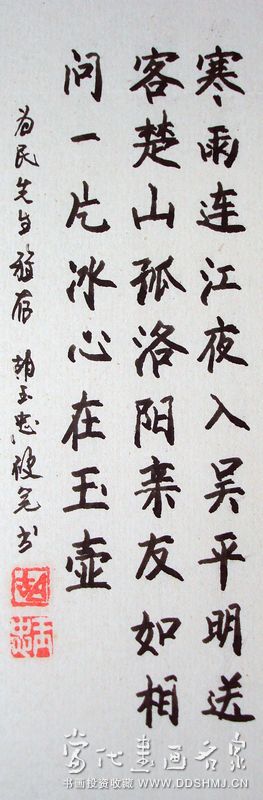 寒雨连江夜入吴平明送
客楚山孤洛阳亲友如相
问一片冰心在玉壶
为民先生雅存 胡玉忠硬笔书
當代書画名家
书画投资收藏 WWW.DDSHMJ.CN